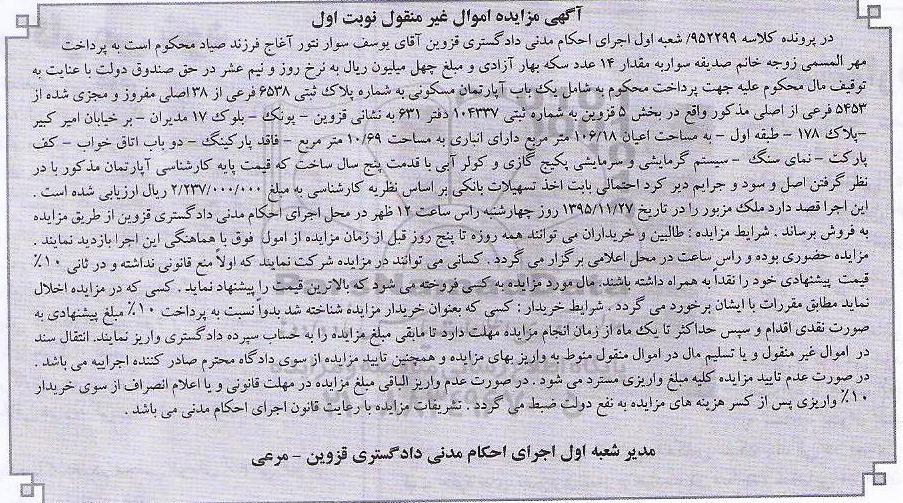 آگهی مزایده اموال غیر منقول نوبت اول
در پرونده کلاسه ۹۵۲۲۹۹/ شعبه اول اجرای احکام مدنی دادگستری قزوین آقای یوسف سوار نتور آغاج فرزند صیاد محکوم است به پرداخت
مهر المسمی زوجه خانم صدیقه سواربه مقدار ۱۴ عدد سکه بهار آزادی و مبلغ چهل میلیون ریال به نرخ روز و نیم عشر در حق صندوق دولت با عنایت به
توقیف مال محکوم علیه جهت پرداخت محکوم به شامل یک باب آپارتمان مسکونی به شماره پلاک ثبتی ۶۵۳۸ فرعی از ۳۸ اصلی مفروز و مجزی شده از
۵۴۵۳ فرعی از اصلی مذکور واقع در بخش ۵ قزوین به شماره ثبتی ۱۰۴۳۳۷ دفتر ۶۳۱ به نشانی قزوین - پونک - بلوک ۱۷ مدیران - بر خیابان امیر کبیر
-پلاک ۱۷۸ - طبقه اول - به مساحت اعیان ۱۰۶/۱۸ متر مربع دارای انباری به مساحت ۱۰/۶۹ متر مربع - فاقد پارکینگ - دو باب اتاق خواب - کف
پارکت - نمای سنگ - سیستم گرمایشی و سرمایشی پکیج گازی و کولر آبی با قدمت پنج سال ساخت که قیمت پایه کارشناسی آپارتمان مذکور با در
نظر گرفتن اصل و سود و جرایم دیر کرد احتمالی بابت اخذ تسهیلات بانکی بر اساس نظریه کارشناسی به مبلغ ۲/۲۳۷/۰۰۰/۰۰۰ ریال ارزیابی شده است .
این اجرا قصد دارد ملک مزبور را در تاریخ ۱۳۹۵/۱۱/۲۷ روز چهارشنبه راس ساعت ۱۲ ظهر در محل اجرای احکام مدنی دادگستری قزوین از طریق مزایده
به فروش برساند . شرایط مزایده : طالبین و خریداران می توانند همه روزه تا پنج روز قبل از زمان مزایده از امول فوق با هماهنگی این اجرا بازدید نمایند .
مزایده حضوری بوده و راس ساعت در محل اعلامی برگزار می گردد . کسانی می توانند در مزایده شرکت نمایند که اولاً منع قانونی نداشته و در ثانی ۱۰٪
قیمت پیشنهادی خود را نقداً به همراه داشته باشند. مال مورد مزایده به کسی فروخته می شود که بالاترین قیمت را پیشنهاد نماید . کسی که در مزایده اخلال
نماید مطابق مقررات با ایشان برخورد می گردد . شرایط خریدار : کسی که بعنوان خریدار مزایده شناخته شد بدواً نسبت به پرداخت ۱۰٪ مبلغ پیشنهادی به
صورت نقدی اقدام و سپس حداکثر تا یک ماه از زمان انجام مزایده مهلت دارد تا مابقی مبلغ مزایده را به حساب سپرده دادگستری واریز نمایند. انتقال سند
در اموال غیر منقول و یا تسلیم مال در اموال منقول منوط به واریز بهای مزایده و همچنین تایید مزایده از سوی دادگاه محترم صادر کننده اجراییه می باشد .
در صورت عدم تایید مزایده کلیه مبلغ واریزی مسترد می شود . در صورت عدم واریز الباقی مبلغ مزایده در مهلت قانونی و یا اعلام انصراف از سوی خریدار
۱۰٪ واریزی پس از کسر هزینه های مزایده به نفع دولت ضبط می گردد . تشریفات مزایده با رعایت قانون اجرای احکام مدنی می باشد .
مدیر شعبه اول اجرای احکام مدنی دادگستری قزوین - مرعی